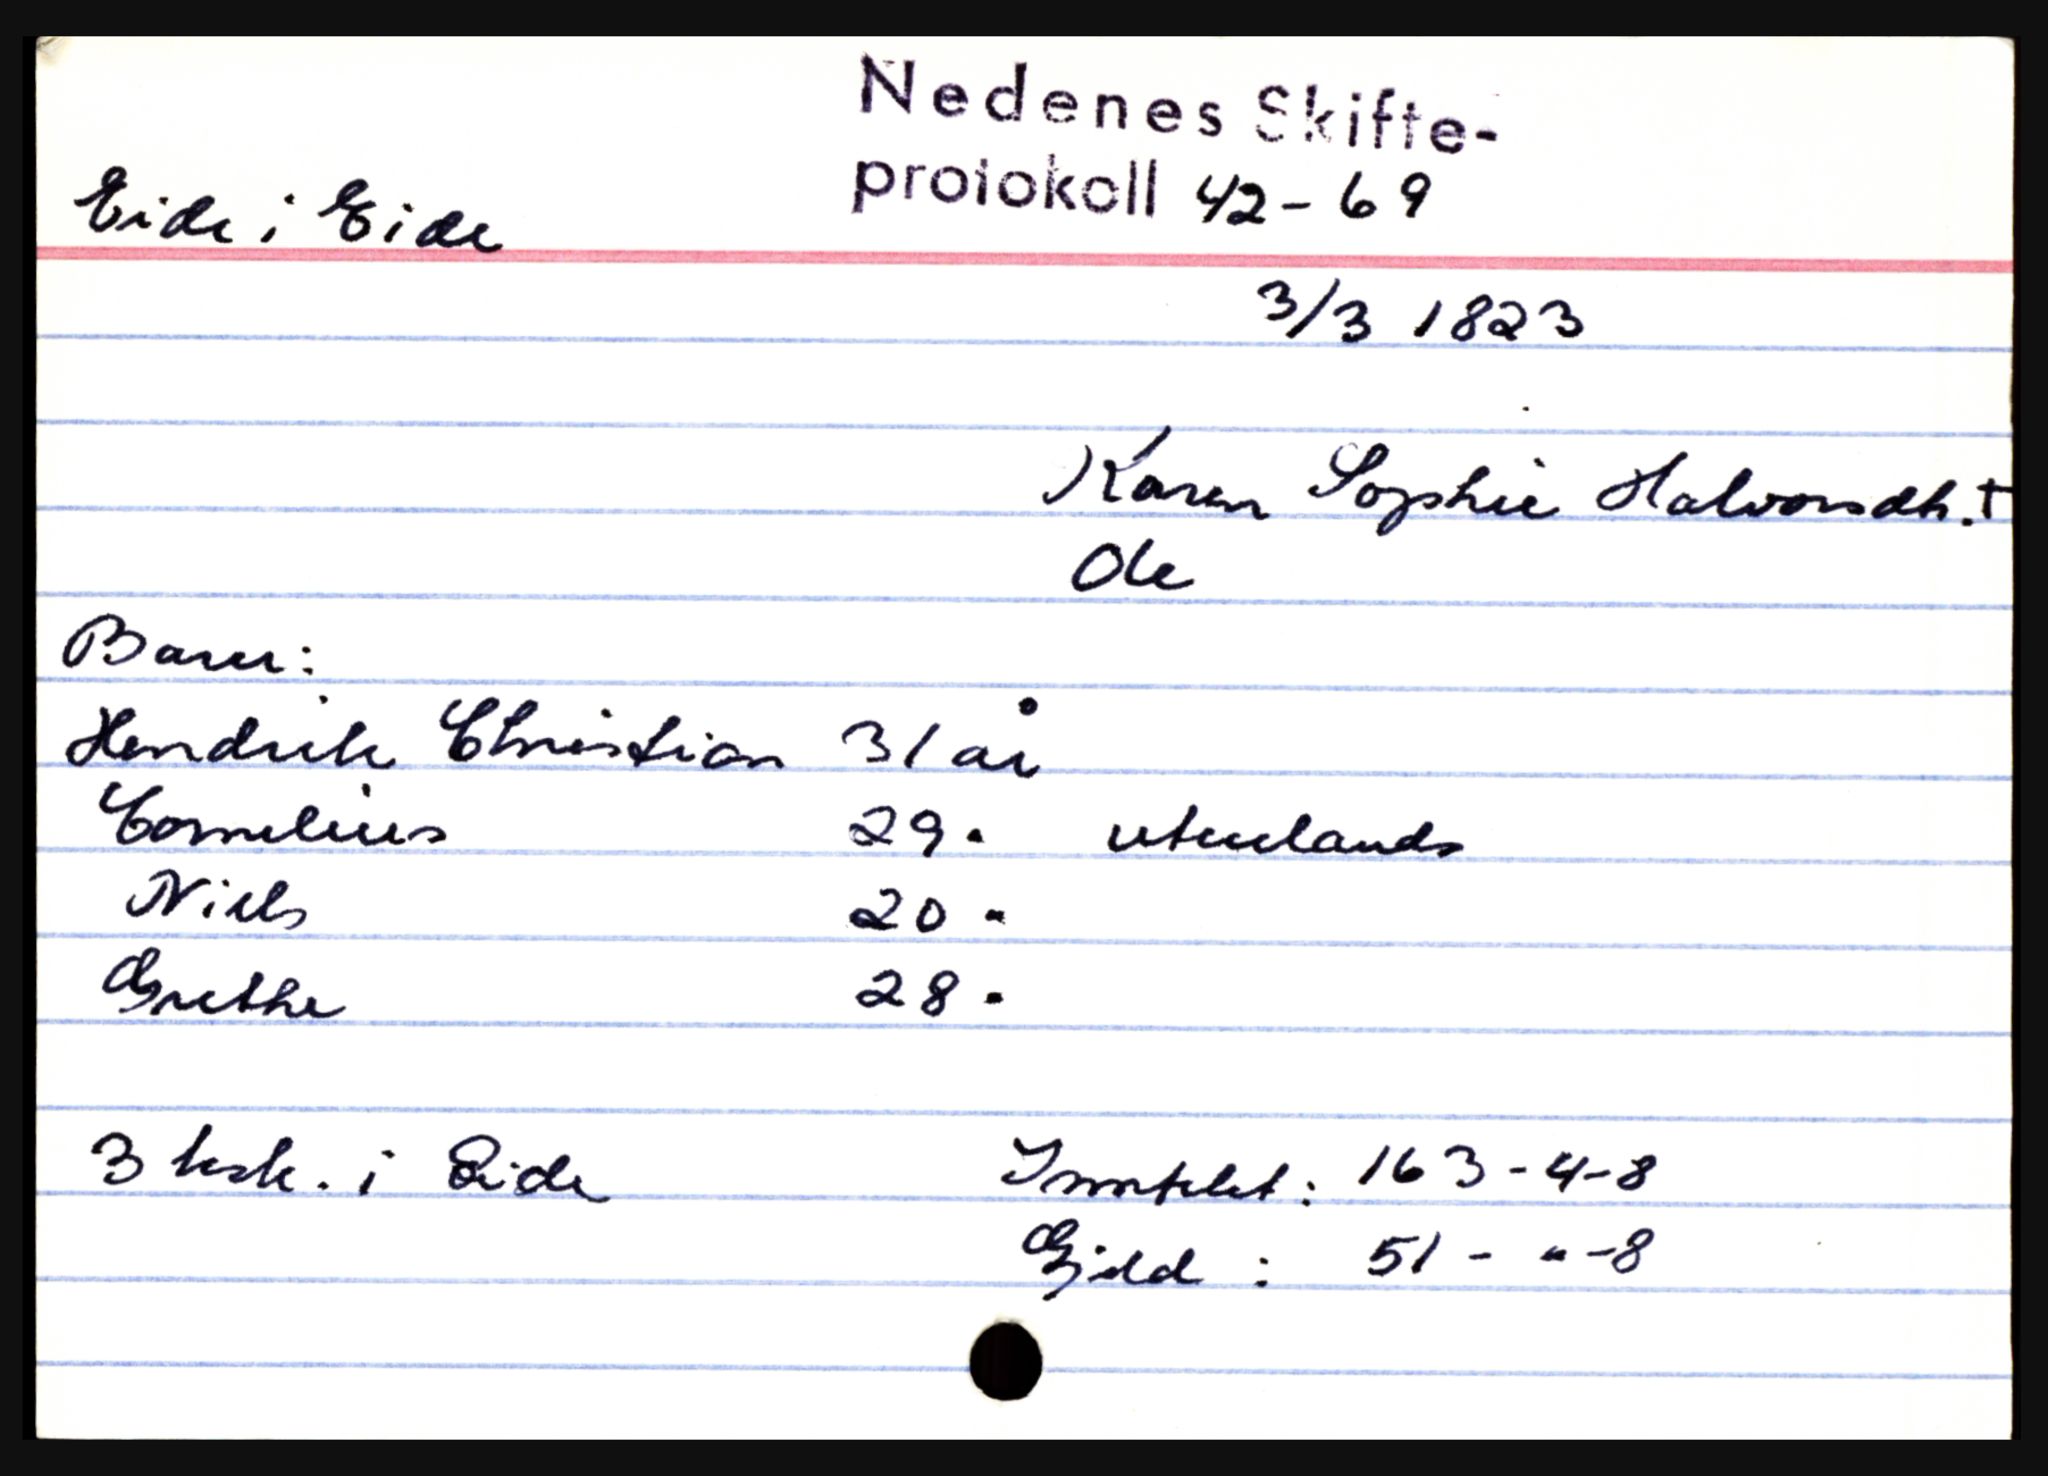 Nedenes Skifte-
protokoll 42-69
Eide i Eide
3/3 1823
Karen Sophie Halvorsdh. †
Ole
Barn:
Hendrik Christian 31 år
Cornelius 29 " utenlands
Niels 20 "
Grethe 28 "
3 hsk. i Eide
Inntekt: 163-4-8
Gjeld: 51 - " - 8